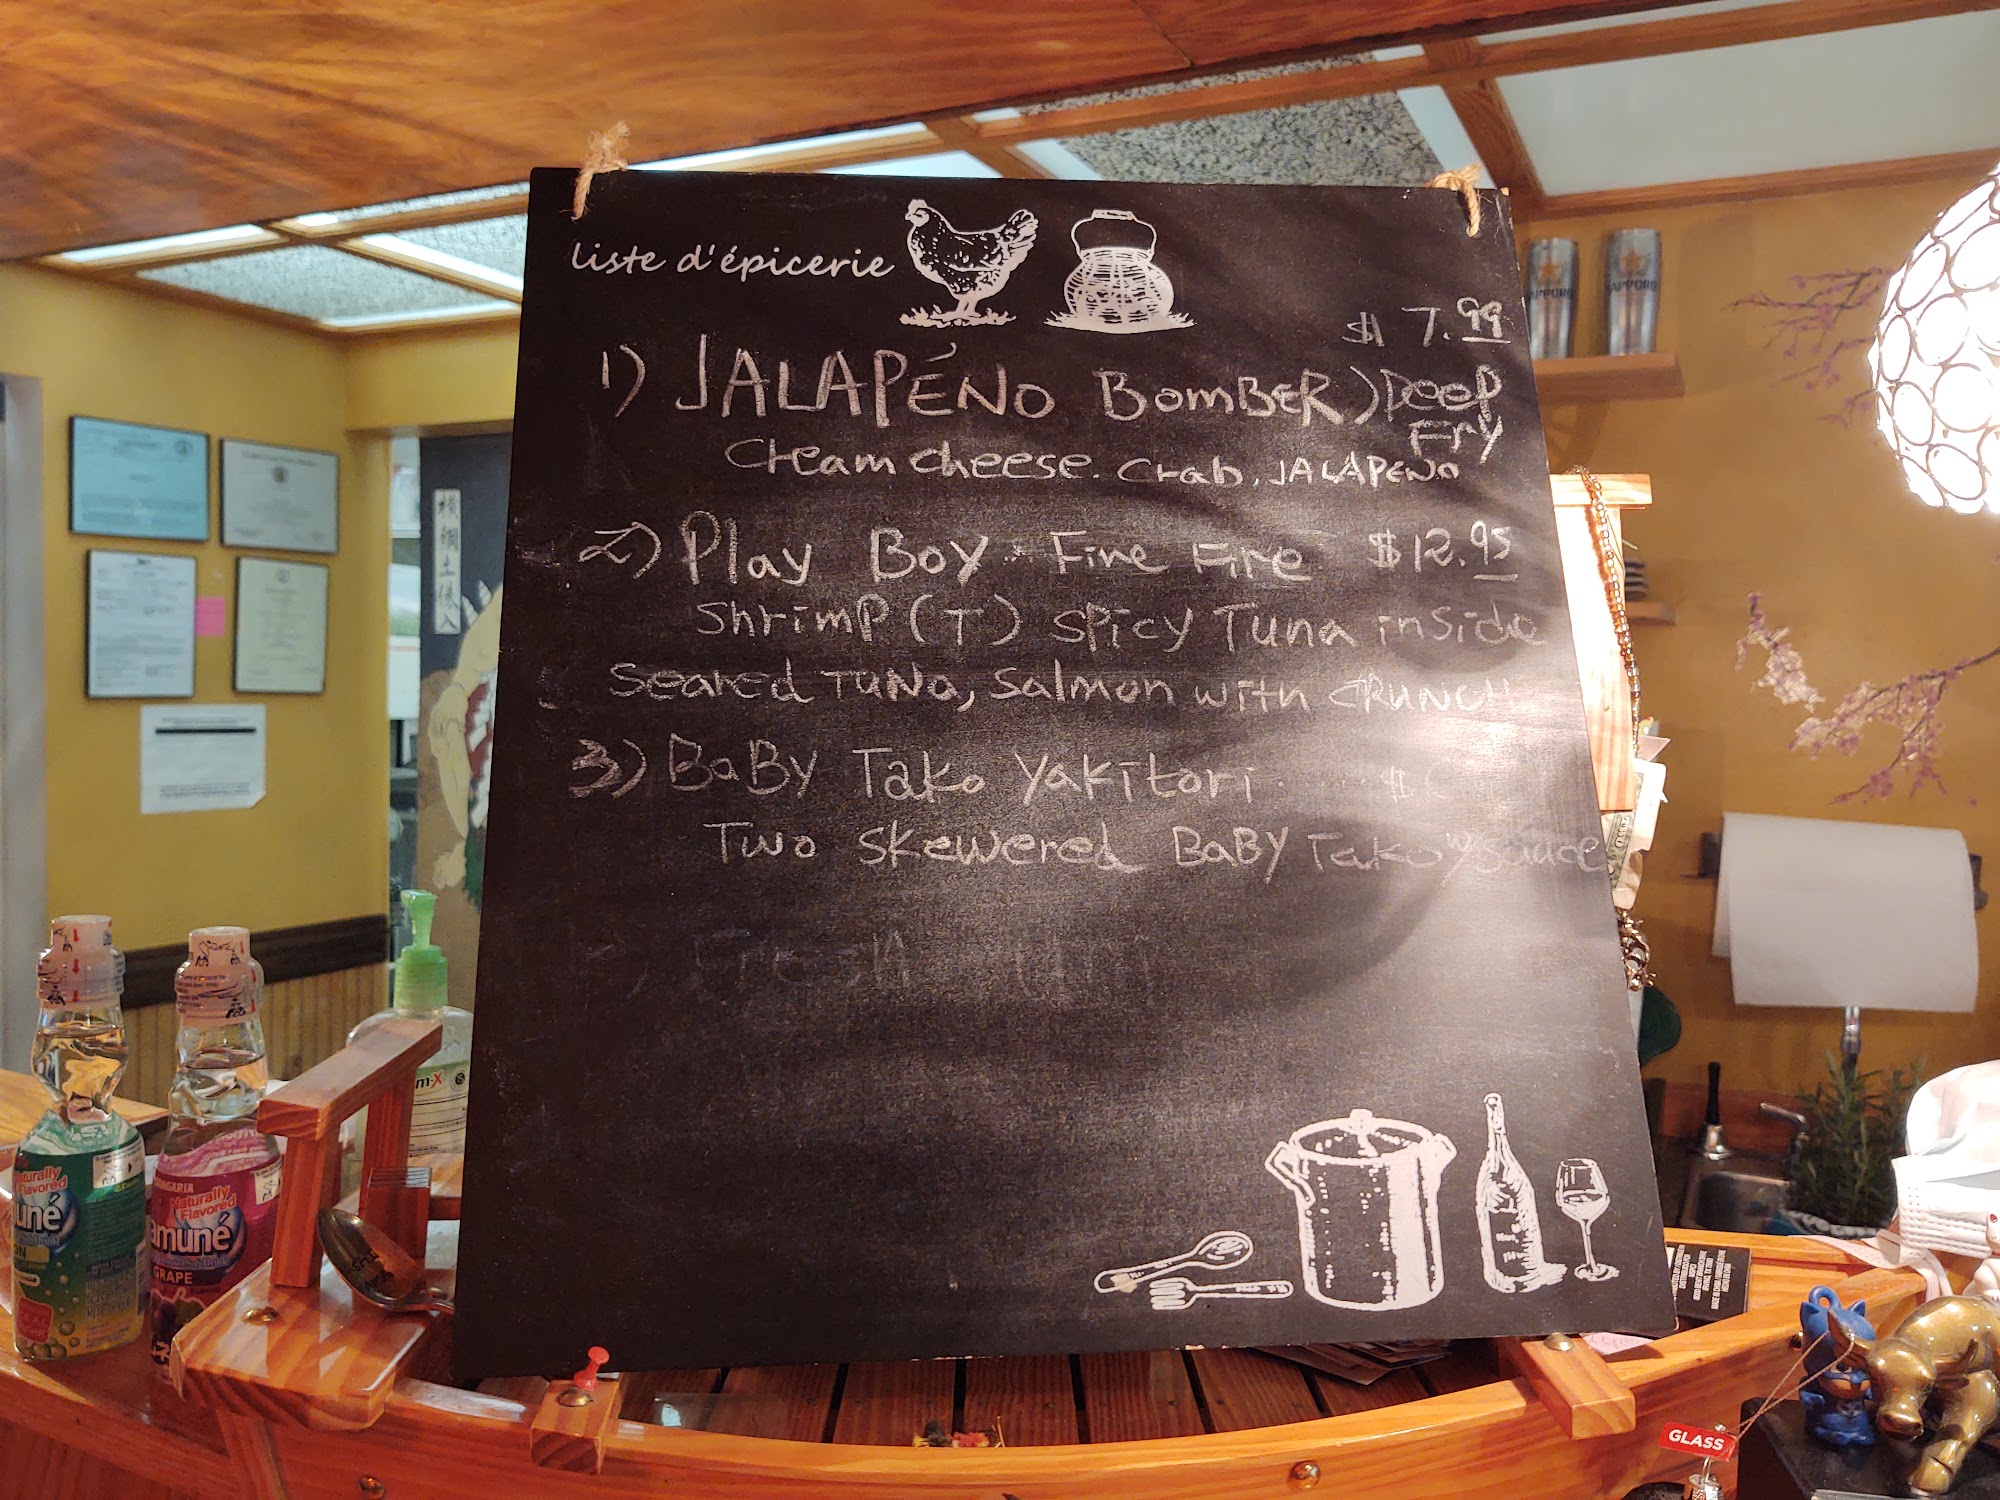 liste d'épicerie
$ 7.99
1) JALAPÉNO BOMBER) Deep
Fry
Cream cheese. Crab, JALAPENO
2) Play Boy Fire Fire $12.95
Shrimp (T) spicy Tuna inside
Seared TUNA, Salmon with CRUNCH
3) BaBy Tako Yakitori
Two skewered BaBy Tako w/sauce
SAPPORO
SAPPORO
横綱土俵入
m-X
Naturally
Flavored
HANGARIA
Naturally
Flavored
GRAPE
GLASS